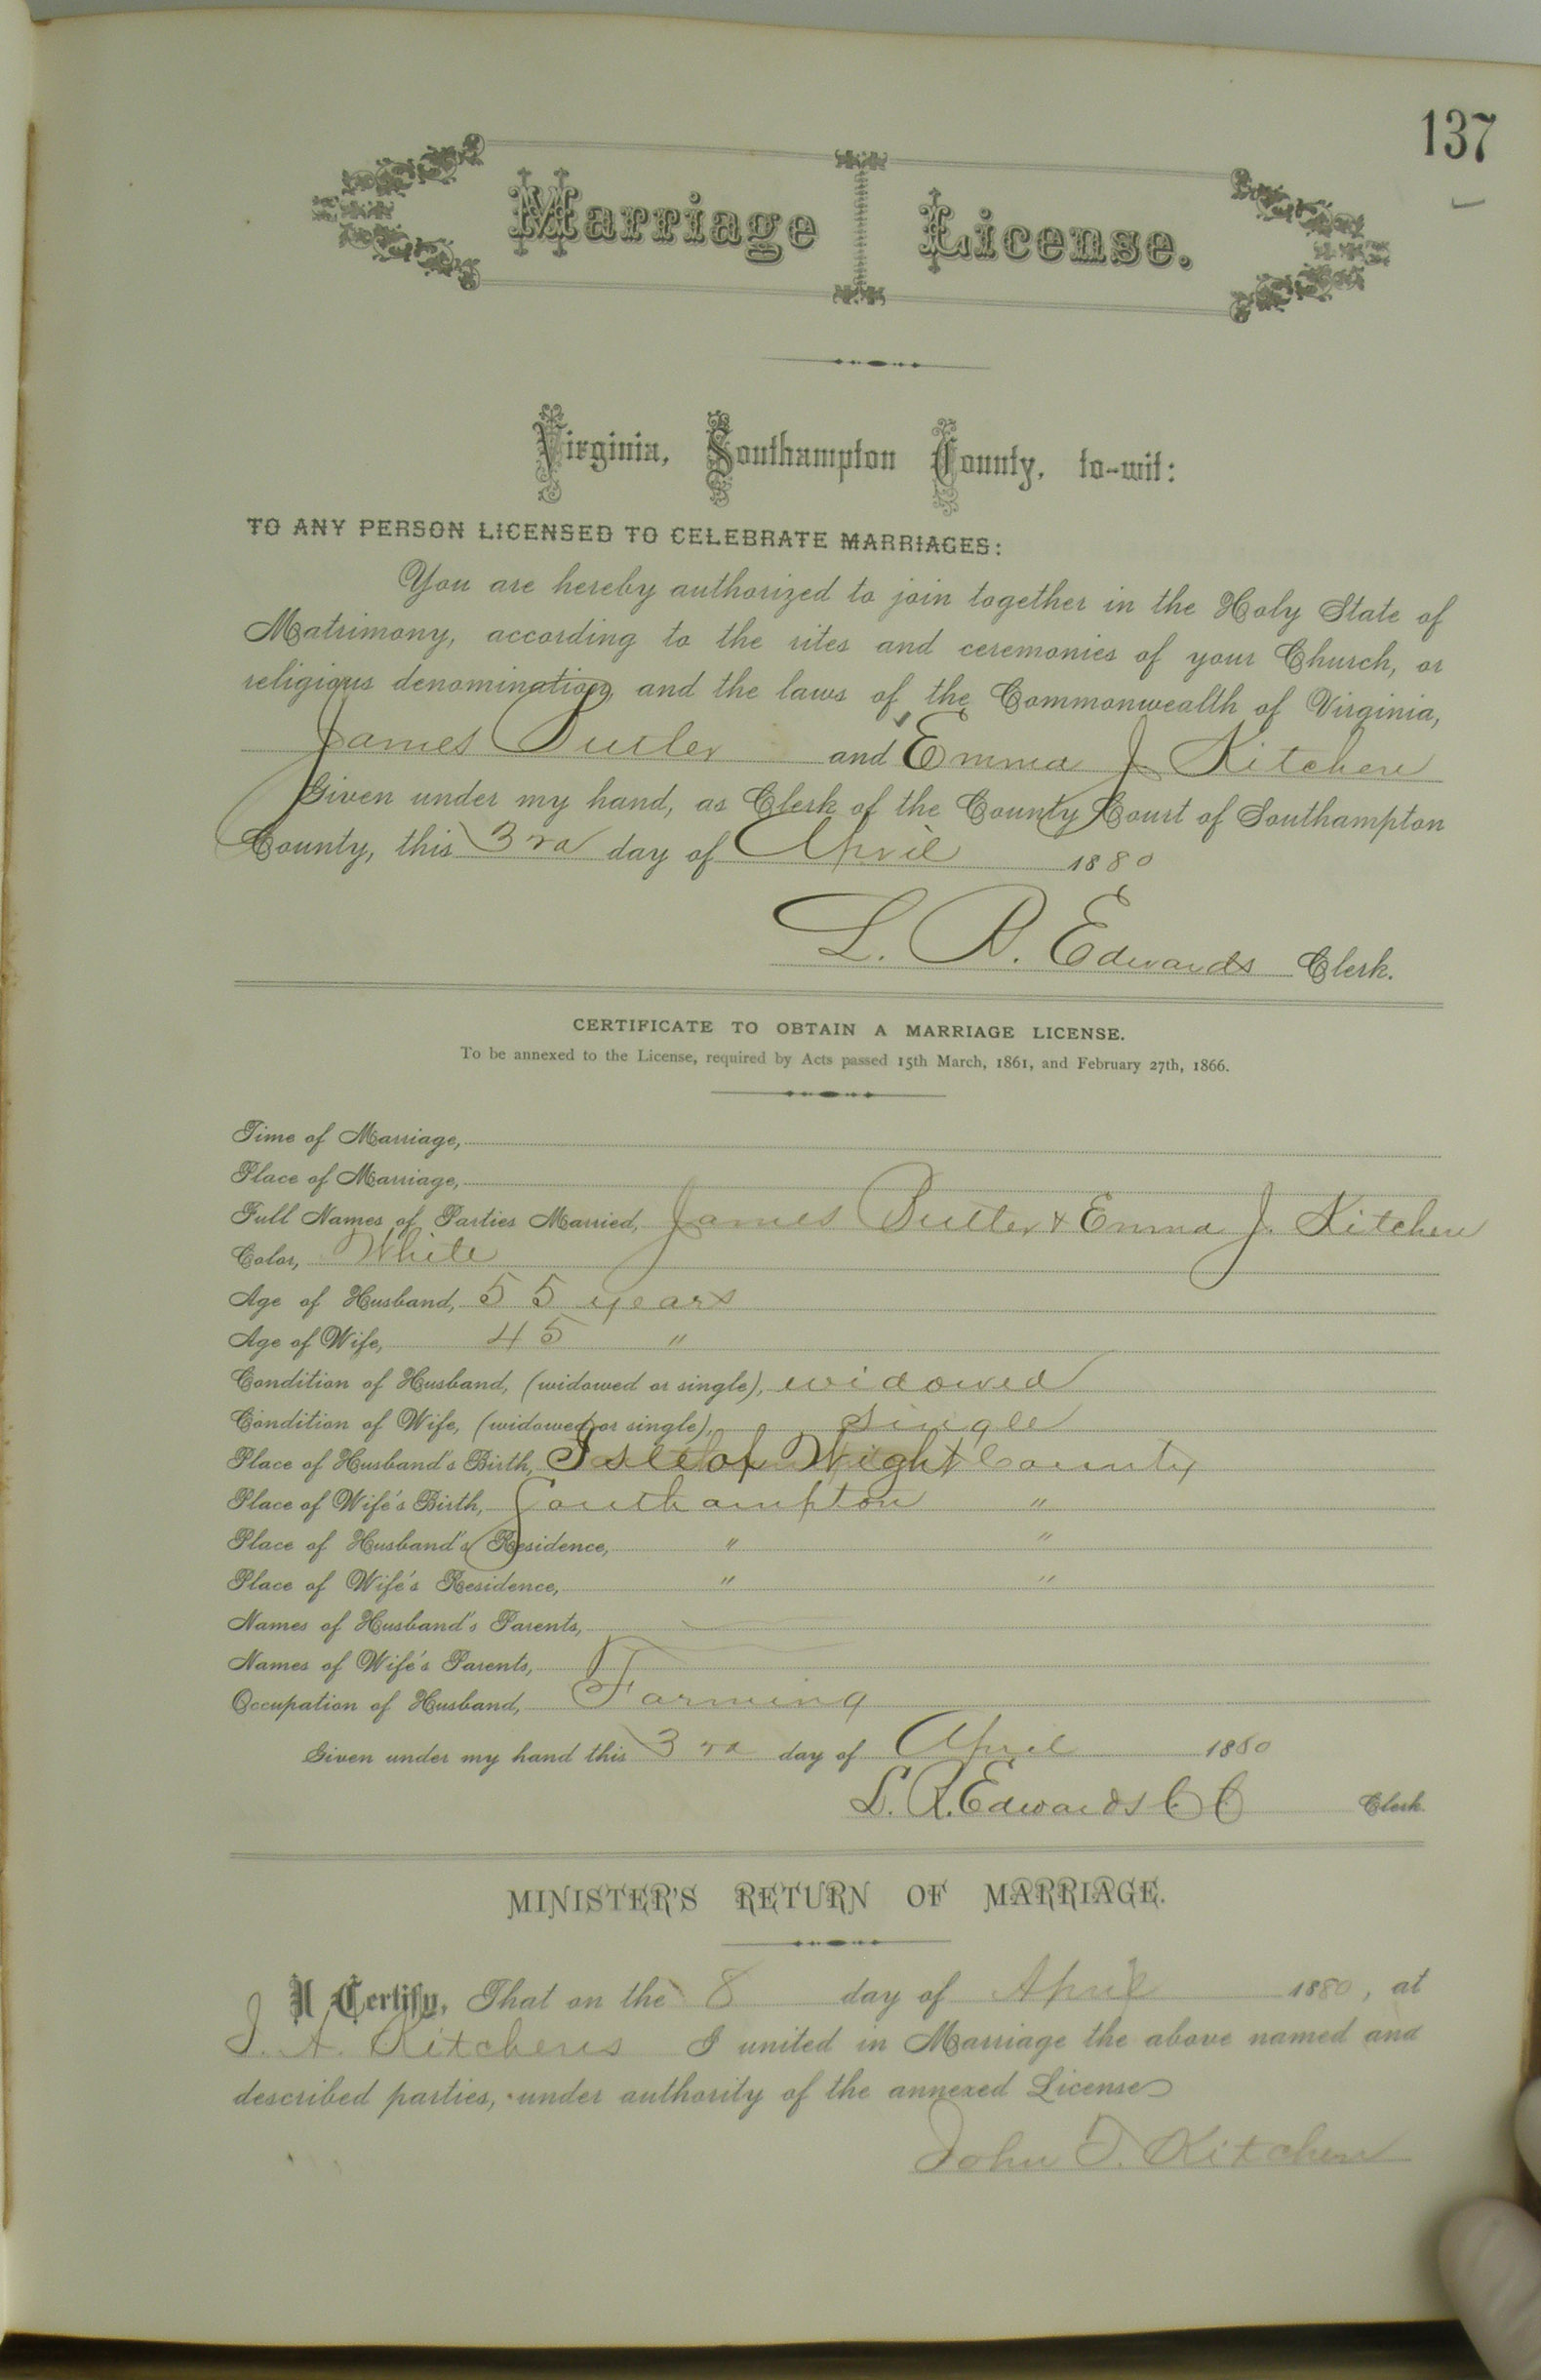 137
Marriage License.
Virginia, Southampton County, to-wit:
TO ANY PERSON LICENSED TO CELEBRATE MARRIAGES:
You are hereby authorized to join together in the Holy State of
Matrimony, according to the rites and ceremonies of your Church, or
religious denomination, and the laws of the Commonwealth of Virginia,
James Butler and Emma J Kitchen
Given under my hand, as Clerk of the County Court of Southampton
County, this 3rd day of April 1880
L. R. Edwards Clerk.
CERTIFICATE TO OBTAIN A MARRIAGE LICENSE.
To be annexed to the License, required by Acts passed 15th March, 1861, and February 27th, 1866.
Time of Marriage,
Place of Marriage,
Full Names of Parties Married, James Butler & Emma J. Kitchen
Color, White
Age of Husband, 55 years
Age of Wife, 45 "
Condition of Husband, (widowed or single), widowed
Condition of Wife, (widowed or single), single
Place of Husband's Birth, Isle of Wight County
Place of Wife's Birth, Southampton "
Place of Husband's Residence, " "
Place of Wife's Residence, " "
Names of Husband's Parents,
Names of Wife's Parents,
Occupation of Husband, Farming
Given under my hand this 3rd day of April 1880
L. R. Edwards CC Clerk.
MINISTER'S RETURN OF MARRIAGE.
I Certify, That on the 8 day of April 1880, at
J. A. Kitchens I united in Marriage the above named and
described parties, under authority of the annexed License
John T. Kitchen